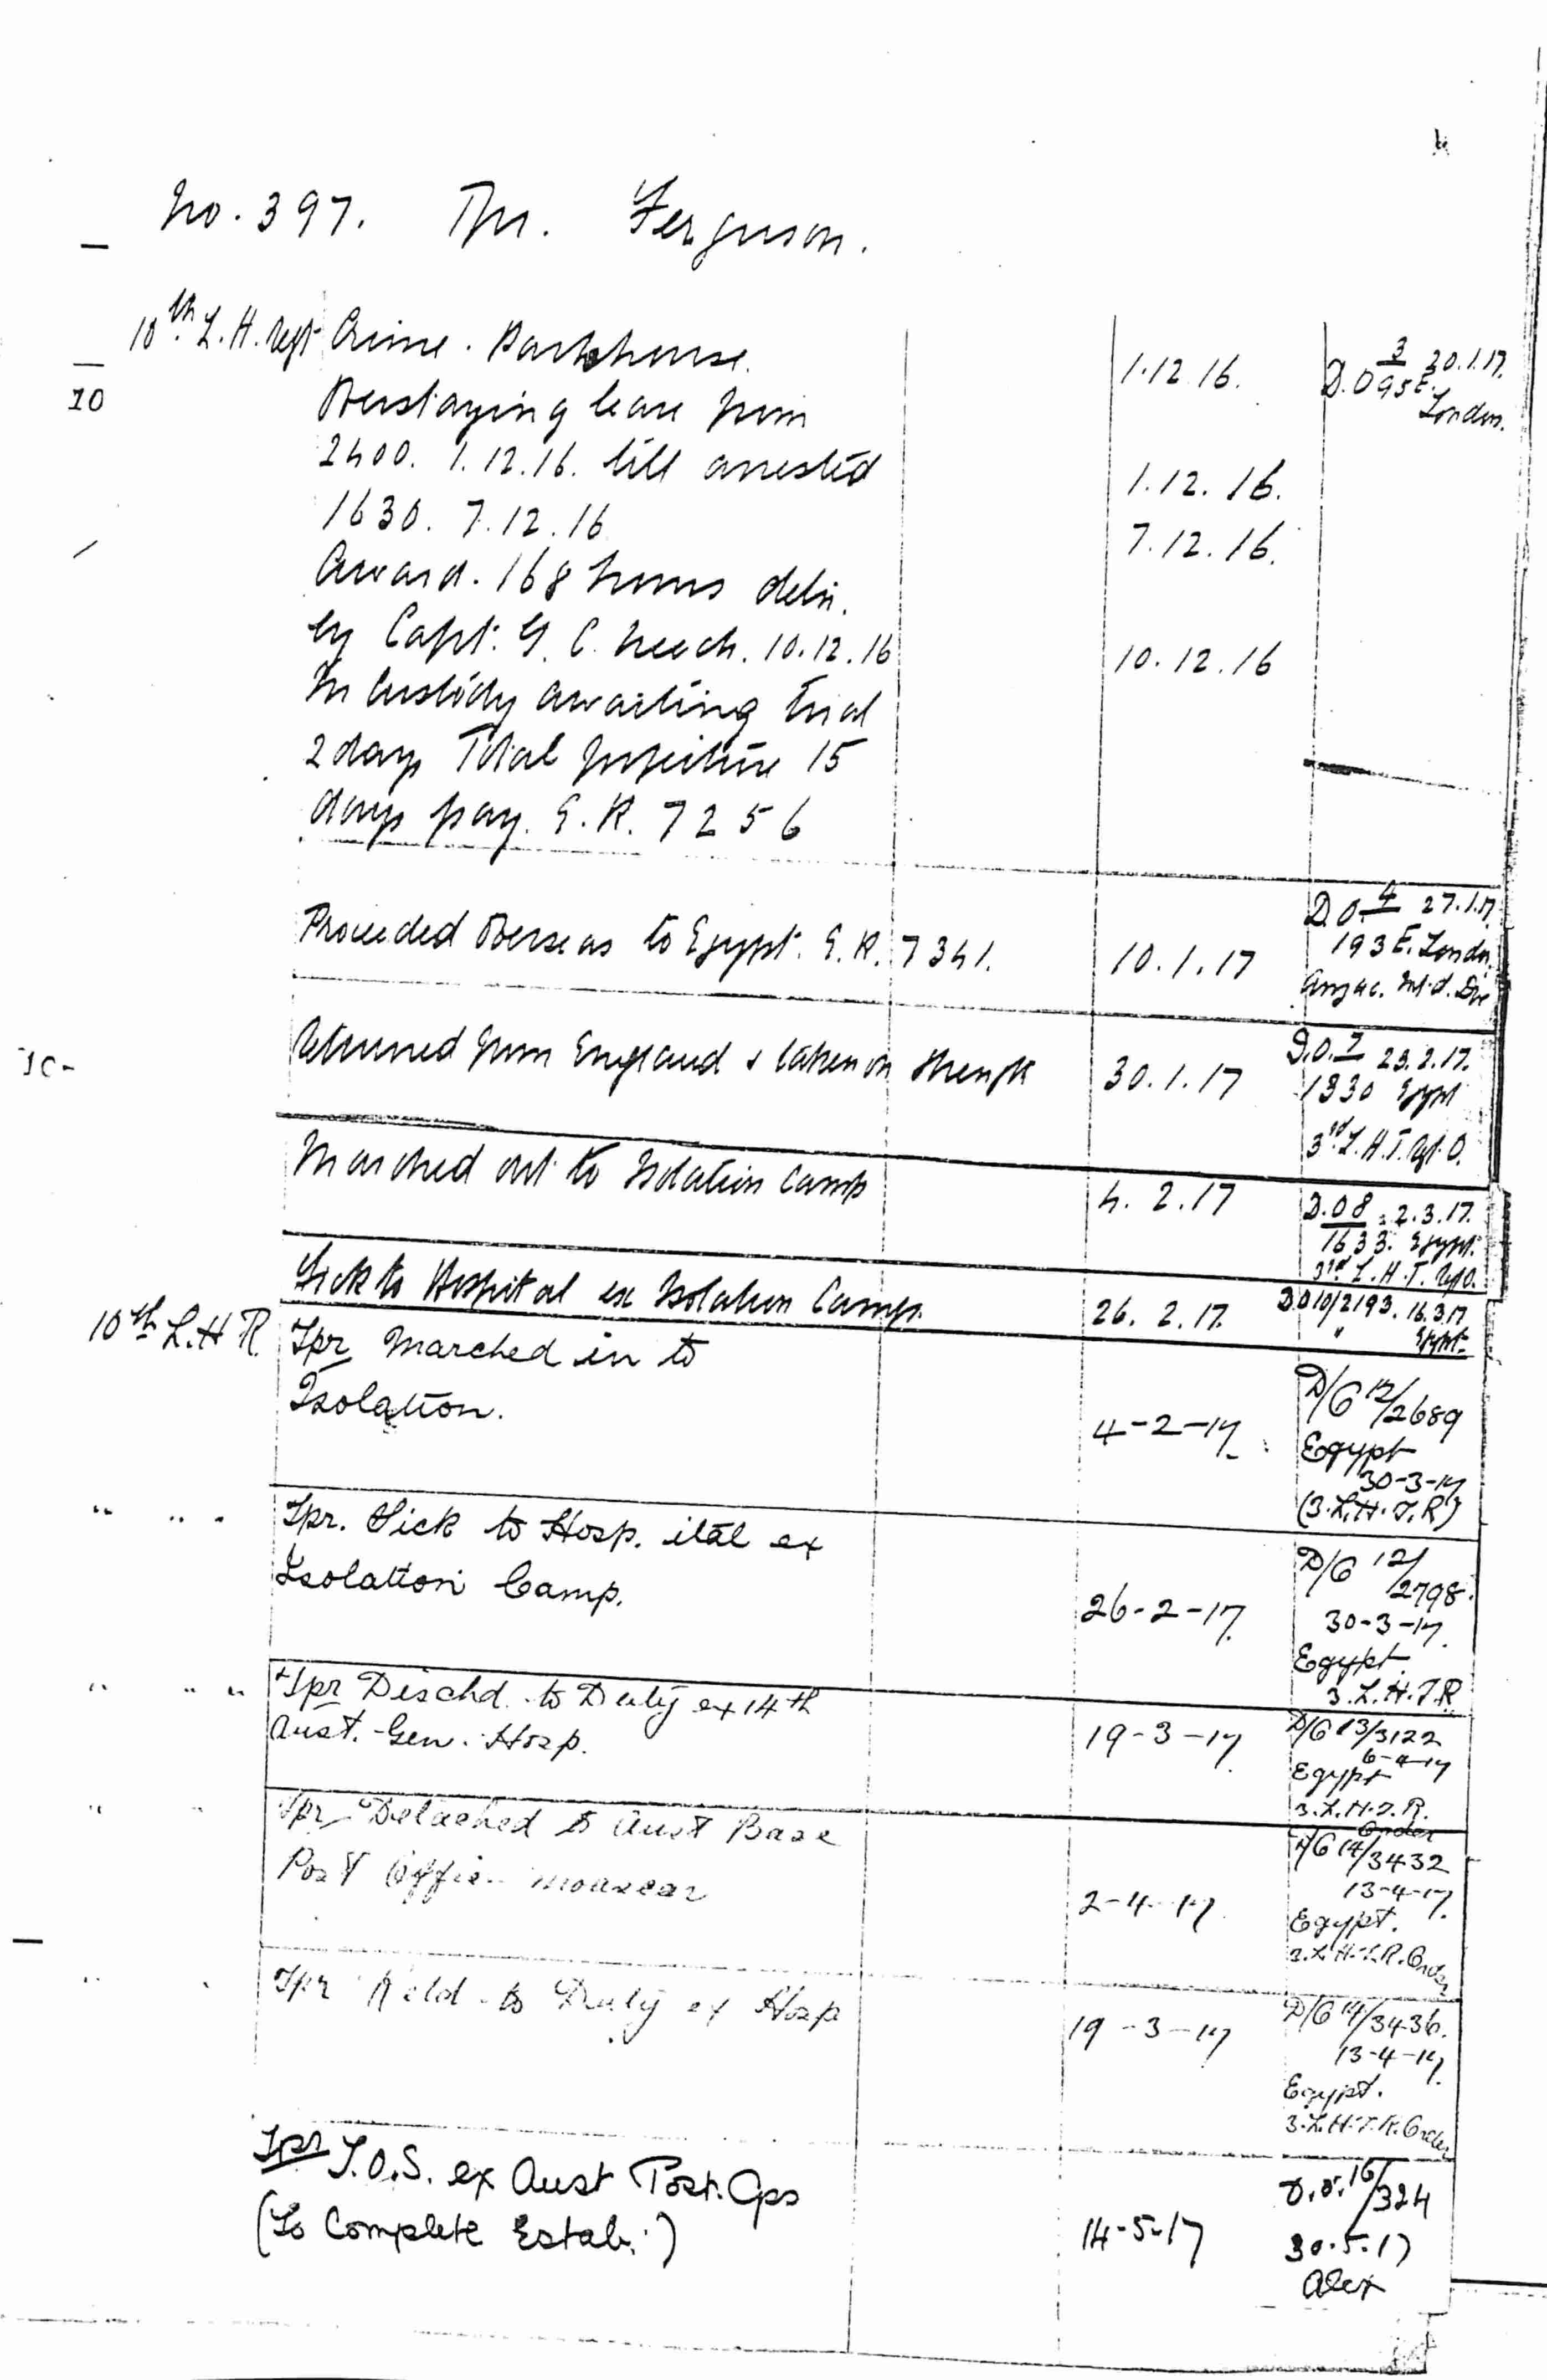 No. 397. Tpr. Ferguson.
10th L. H. Regt Crime. Parkhouse.
1.12.16.
D.O 3/95 E. 20.1.17.
London.
10
Overstaying leave from
2400. 1.12.16. till arrested
1.12.16.
1630. 7.12.16
7.12.16.
Award. 168 hours detn.
by Capt. G. C. 10.12.16
10.12.16
In custody awaiting trial
2 days Total forfeiture 15
days pay. E.R. 7256
Proceeded Overseas to Egypt. E.R. 7341.
10.1.17
D.O. 4 27.1.17
193 E. Londn.
Anzac. Mtd. Div
Returned from England & taken on strength
30.1.17
D.O. 7 23.2.17.
1330 Egypt
3rd L.H.T. Rgt. O.
Marched out to Isolation Camp
4.2.17
D.O 8 2.3.17.
1633. Egypt.
3rd L.H.T. Rgt O.
Sick to Hospital ex Isolation Camp.
26.2.17.
D.O 10/2193. 16.3.17
" Egypt
10th L.H R. Tpr Marched in to
Isolation.
4-2-17
D/O 12/2689
Egypt
30-3-17
(3.L.H.T.R)
" " " Tpr. Sick to Hosp. ital ex
Isolation Camp.
26-2-17.
D/O 12/2798.
30-3-17.
Egypt.
3.L.H.T.R
" " " Tpr Dischd. to Duty ex 14th
Aust. Gen. Hosp.
19-3-17
D/O 13/3122
6-4-17
Egypt
3.L.H.T.R.
Order
" " Tpr Detached to Aust Base
Post Office Moascar
2-4-17
D/O 14/3432
13-4-17.
Egypt.
3.L.H.T.R. Order
" " Tpr Retd. to Duty ex Hosp
19-3-17
D/O 14/3436.
13-4-17.
Egypt.
3.L.H.T.R. Order
Tpr T.O.S. ex Aust Post. Cps
(To Complete Estab.)
14-5-17
D.O. 16/324
30.5.17
Alex